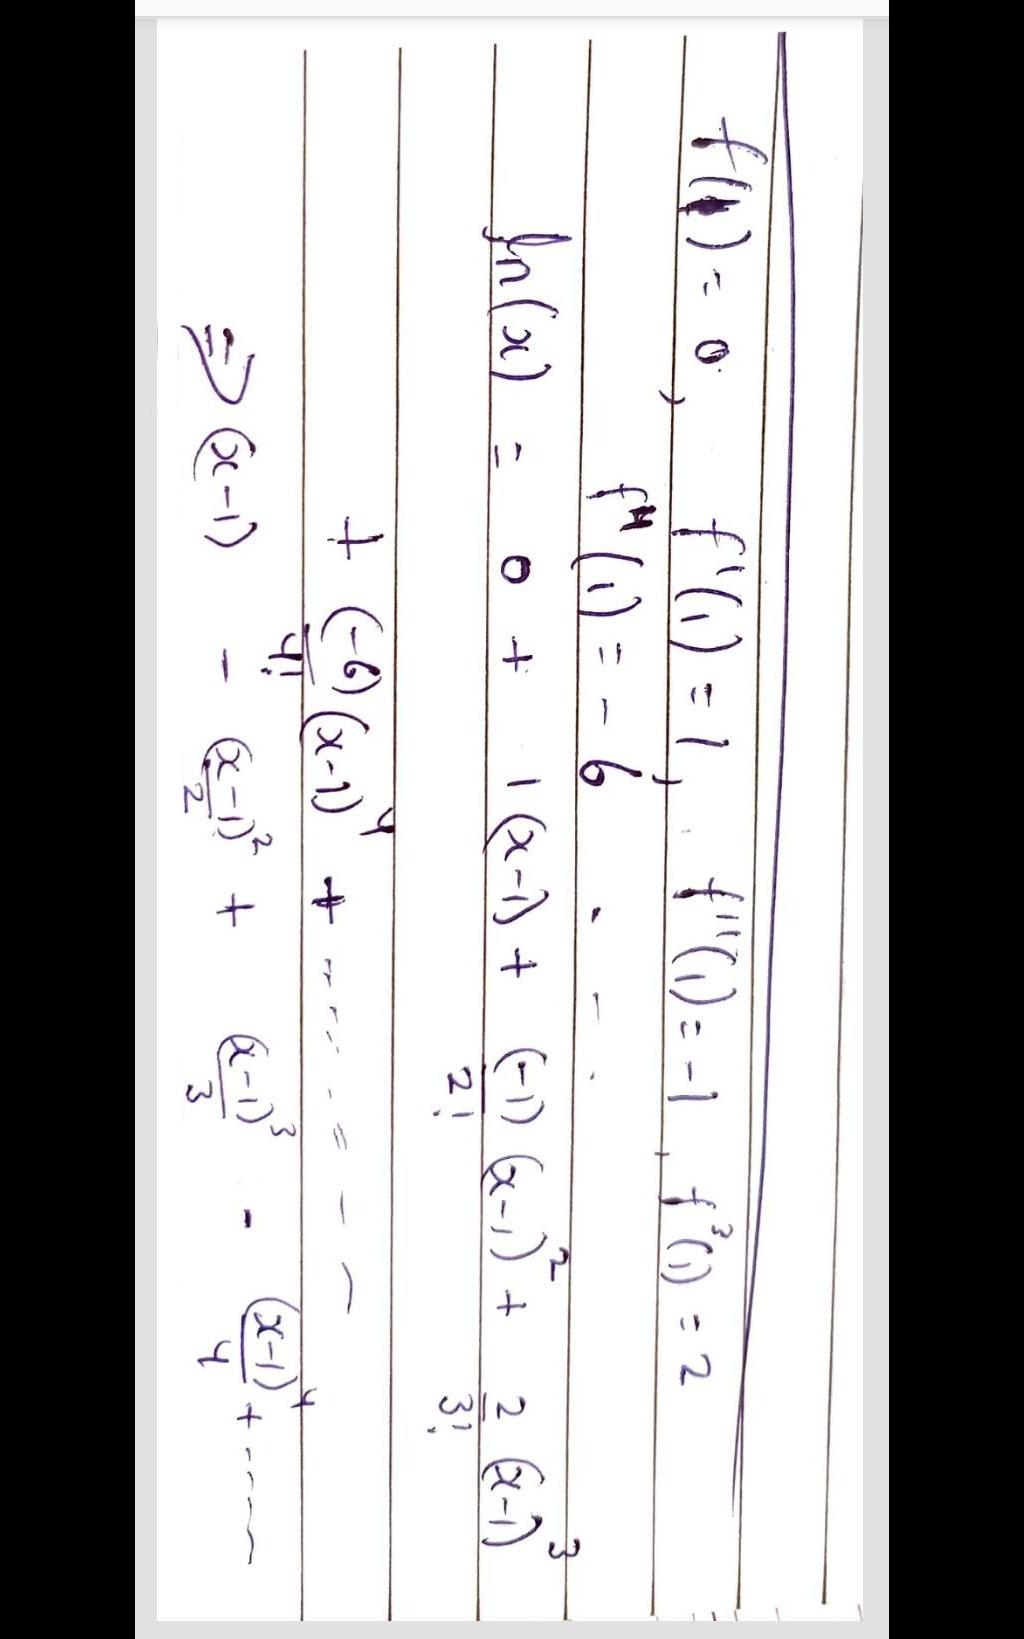 f(1) = 0, f'(1) = 1, f''(1) = -1, f³(1) = 2
f⁴(1) = -6 . - .
ln(x) = 0 + 1(x-1) + (-1)/2! (x-1)² + 2/3! (x-1)³
+ (-6)/4! (x-1)⁴ + - - - - . = - -
⇒ (x-1) - (x-1)²/2 + (x-1)³/3 - (x-1)⁴/4 + - - - -